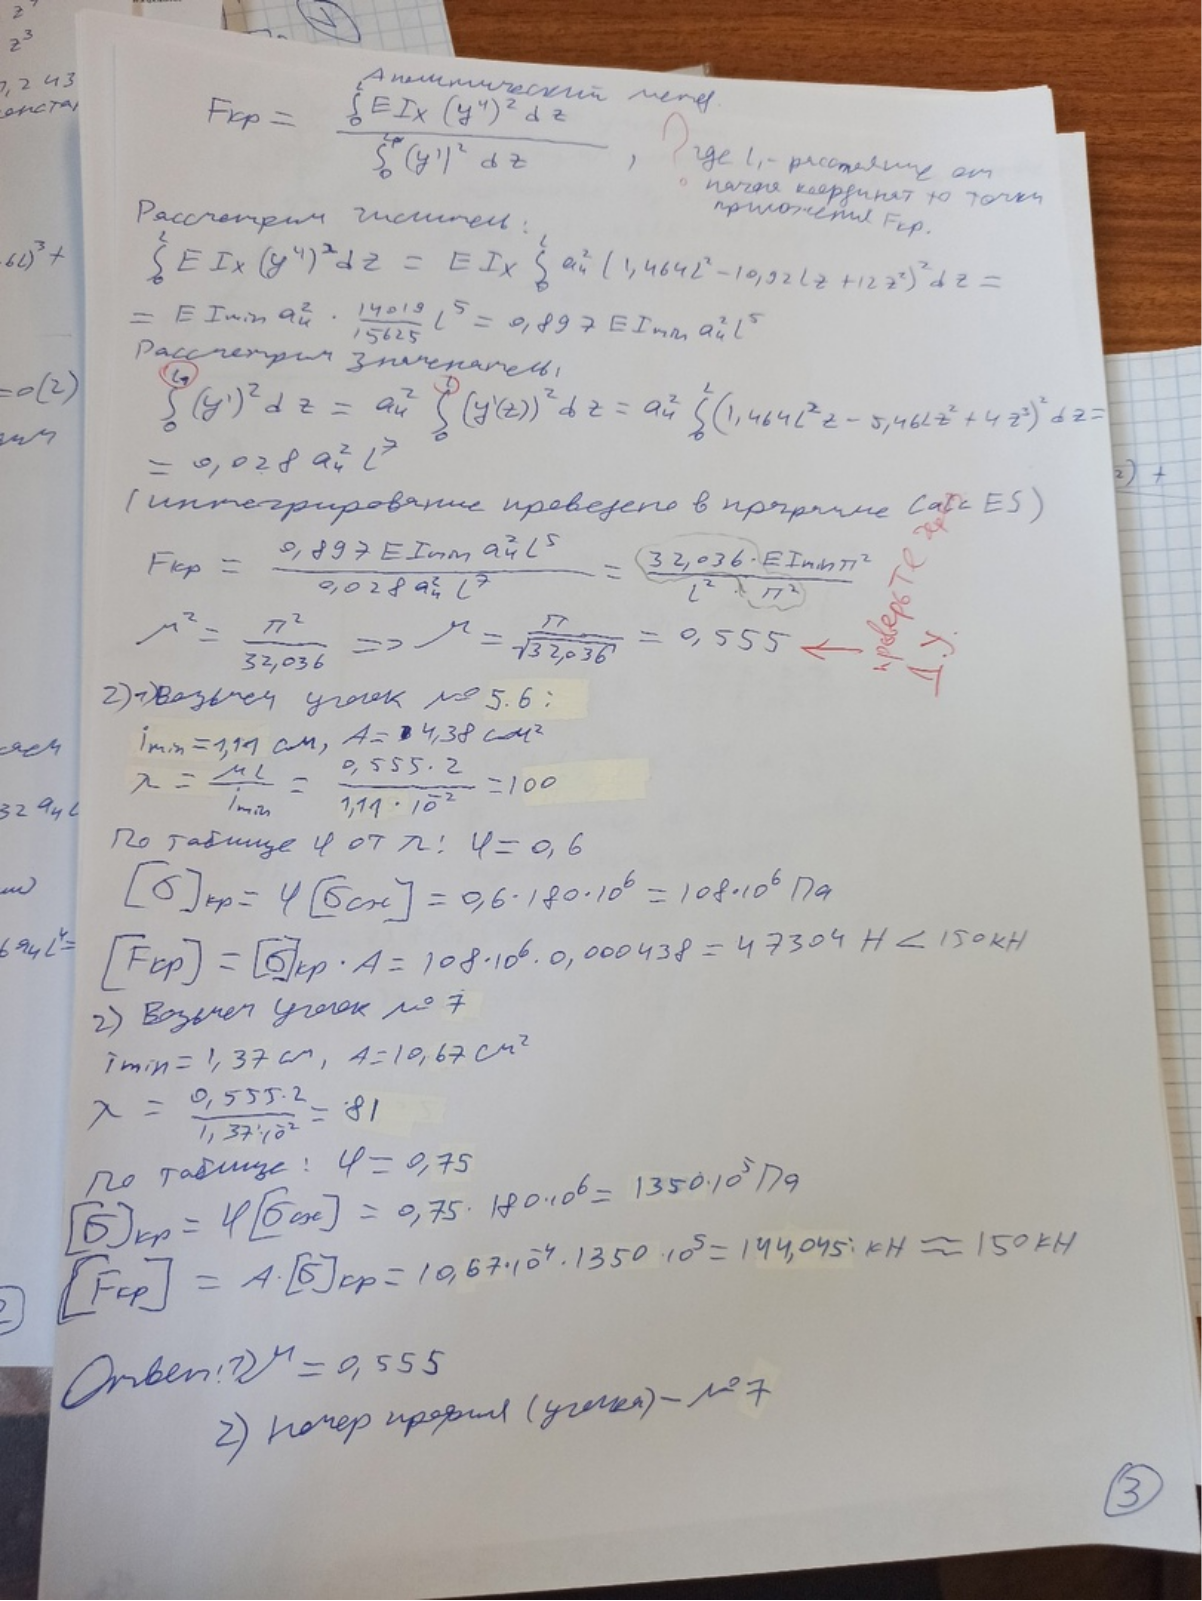 Аналитический метод.
Fкр = ∫₀ᴸ E Ix (y'')² dz / ∫₀ᴸ¹ (y')² dz , ? где l₁ - расстояние от
начала координат до точки
приложения Fкр.
Рассмотрим числитель:
∫₀ᴸ E Ix (y'')² dz = E Ix ∫₀ᴸ a₄² (1,464L² - 10,92Lz + 12z²)² dz =
= E Imin a₄² · 14019/15625 L⁵ = 0,897 E Imin a₄² L⁵
Рассмотрим знаменатель:
∫₀ᴸ¹ (y')² dz = a₄² ∫₀ᴸ (y'(z))² dz = a₄² ∫₀ᴸ (1,464L²z - 5,46Lz² + 4z³)² dz =
= 0,028 a₄² L⁷
(интегрирование проведено в программе Calc ES)
Fкр = 0,897 E Imin a₄² L⁵ / 0,028 a₄² L⁷ = 32,036 · E Imin π² / L² · π²
μ² = π² / 32,036 => μ = π / √32,036 = 0,555 ←
проверьте через
Д.У.
2) 1) Возьмем уголок № 5.6:
imin = 1,11 см, A = 4,38 см²
λ = μL / imin = 0,555·2 / 1,11·10⁻² = 100
По таблице φ от λ: φ = 0,6
[σ]кр = φ[σсж] = 0,6·180·10⁶ = 108·10⁶ Па
[Fкр] = [σ]кр · A = 108·10⁶·0,000438 = 47304 Н < 150кН
2) Возьмем уголок № 7
imin = 1,37 см, A = 10,67 см²
λ = 0,555·2 / 1,37·10⁻² = 81
По таблице: φ = 0,75
[σ]кр = φ[σсж] = 0,75·180·10⁶ = 1350·10⁵ Па
[Fкр] = A·[σ]кр = 10,67·10⁻⁴·1350·10⁵ = 144,045 кН ≈ 150кН
Ответ: 1) μ = 0,555
2) Номер профиля (уголка) - № 7
3